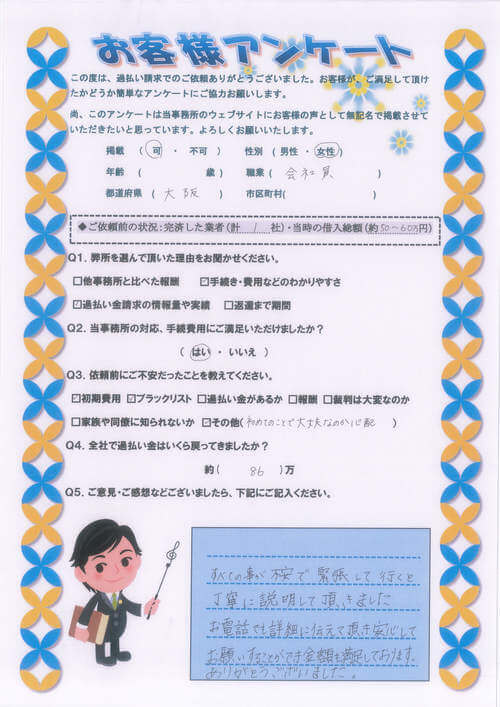 お客様アンケート
この度は、過払い請求でのご依頼ありがとうございました。お客様が、ご満足して頂け
たかどうか簡単なアンケートにご協力お願いします。
尚、このアンケートは当事務所のウェブサイトにお客様の声として無記名で掲載させて
いただきたいと思っています。よろしくお願いいたします。
掲載 ( 可 ・ 不可 ) 性別 ( 男性 ・ 女性 )
年齢 ( 歳 ) 職業 ( 会社員 )
都道府県 ( 大阪 ) 市区町村( )
◆ご依頼前の状況:完済した業者(計 1 社)・当時の借入総額(約50~60万円)
Q1. 弊所を選んで頂いた理由をお聞かせください。
□他事務所と比べた報酬 ☑手続き・費用などのわかりやすさ
☑過払い金請求の情報量や実績 □返還まで期間
Q2. 当事務所の対応、手続費用にご満足いただけましたか?
( はい ・ いいえ )
Q3. 依頼前にご不安だったことを教えてください。
☑初期費用 ☑ブラックリスト □過払い金があるか □報酬 □裁判は大変なのか
□家族や同僚に知られないか ☑その他(初めてのことで大丈夫なのか心配 )
Q4. 全社で過払い金はいくら戻ってきましたか?
約( 86 )万
Q5. ご意見・ご感想などございましたら、下記にご記入ください。
すべての事が不安で緊張して行くと
丁寧に説明して頂きました
お電話でも詳細に伝えて頂き安心して
お願いすることができ金額も満足しております。
ありがとうございました。